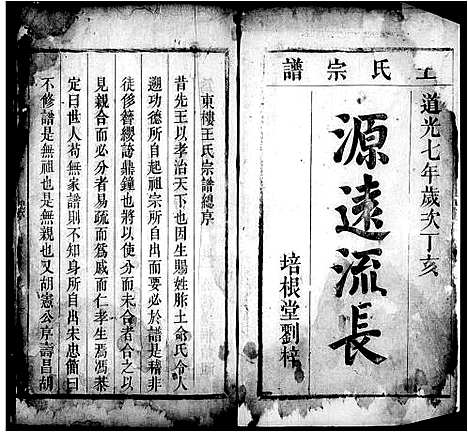 王氏宗譜
道光七年歲次丁亥
源遠流長
培根堂劉梓
東樓王氏宗譜總序
昔先王以孝治天下也因生賜姓胙土命氏令人
遡功德所自起祖宗所自出而要必於譜是稽非
徒侈簪纓誇鼎鐘也將以使分而未合者合之以
見親合而必分者易疏而爲戚而仁孝生焉馮恭
定曰世人苟無家譜則不知身所自出宋忠簡曰
不修譜是無祖也是無親也又胡憲公序壽昌胡